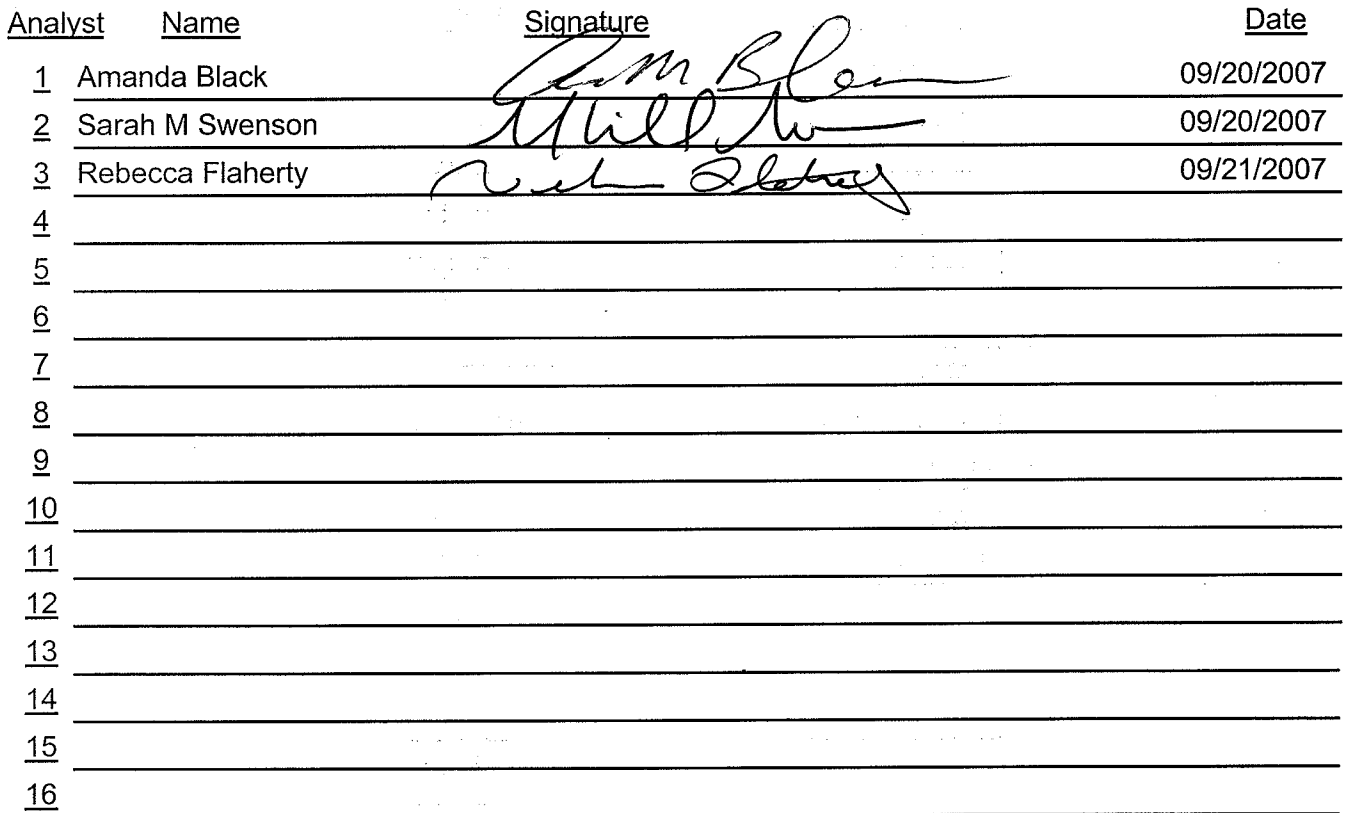 Analyst Name Signature Date
1 Amanda Black 09/20/2007
2 Sarah M Swenson 09/20/2007
3 Rebecca Flaherty 09/21/2007
4
5
6
7
8
9
10
11
12
13
14
15
16